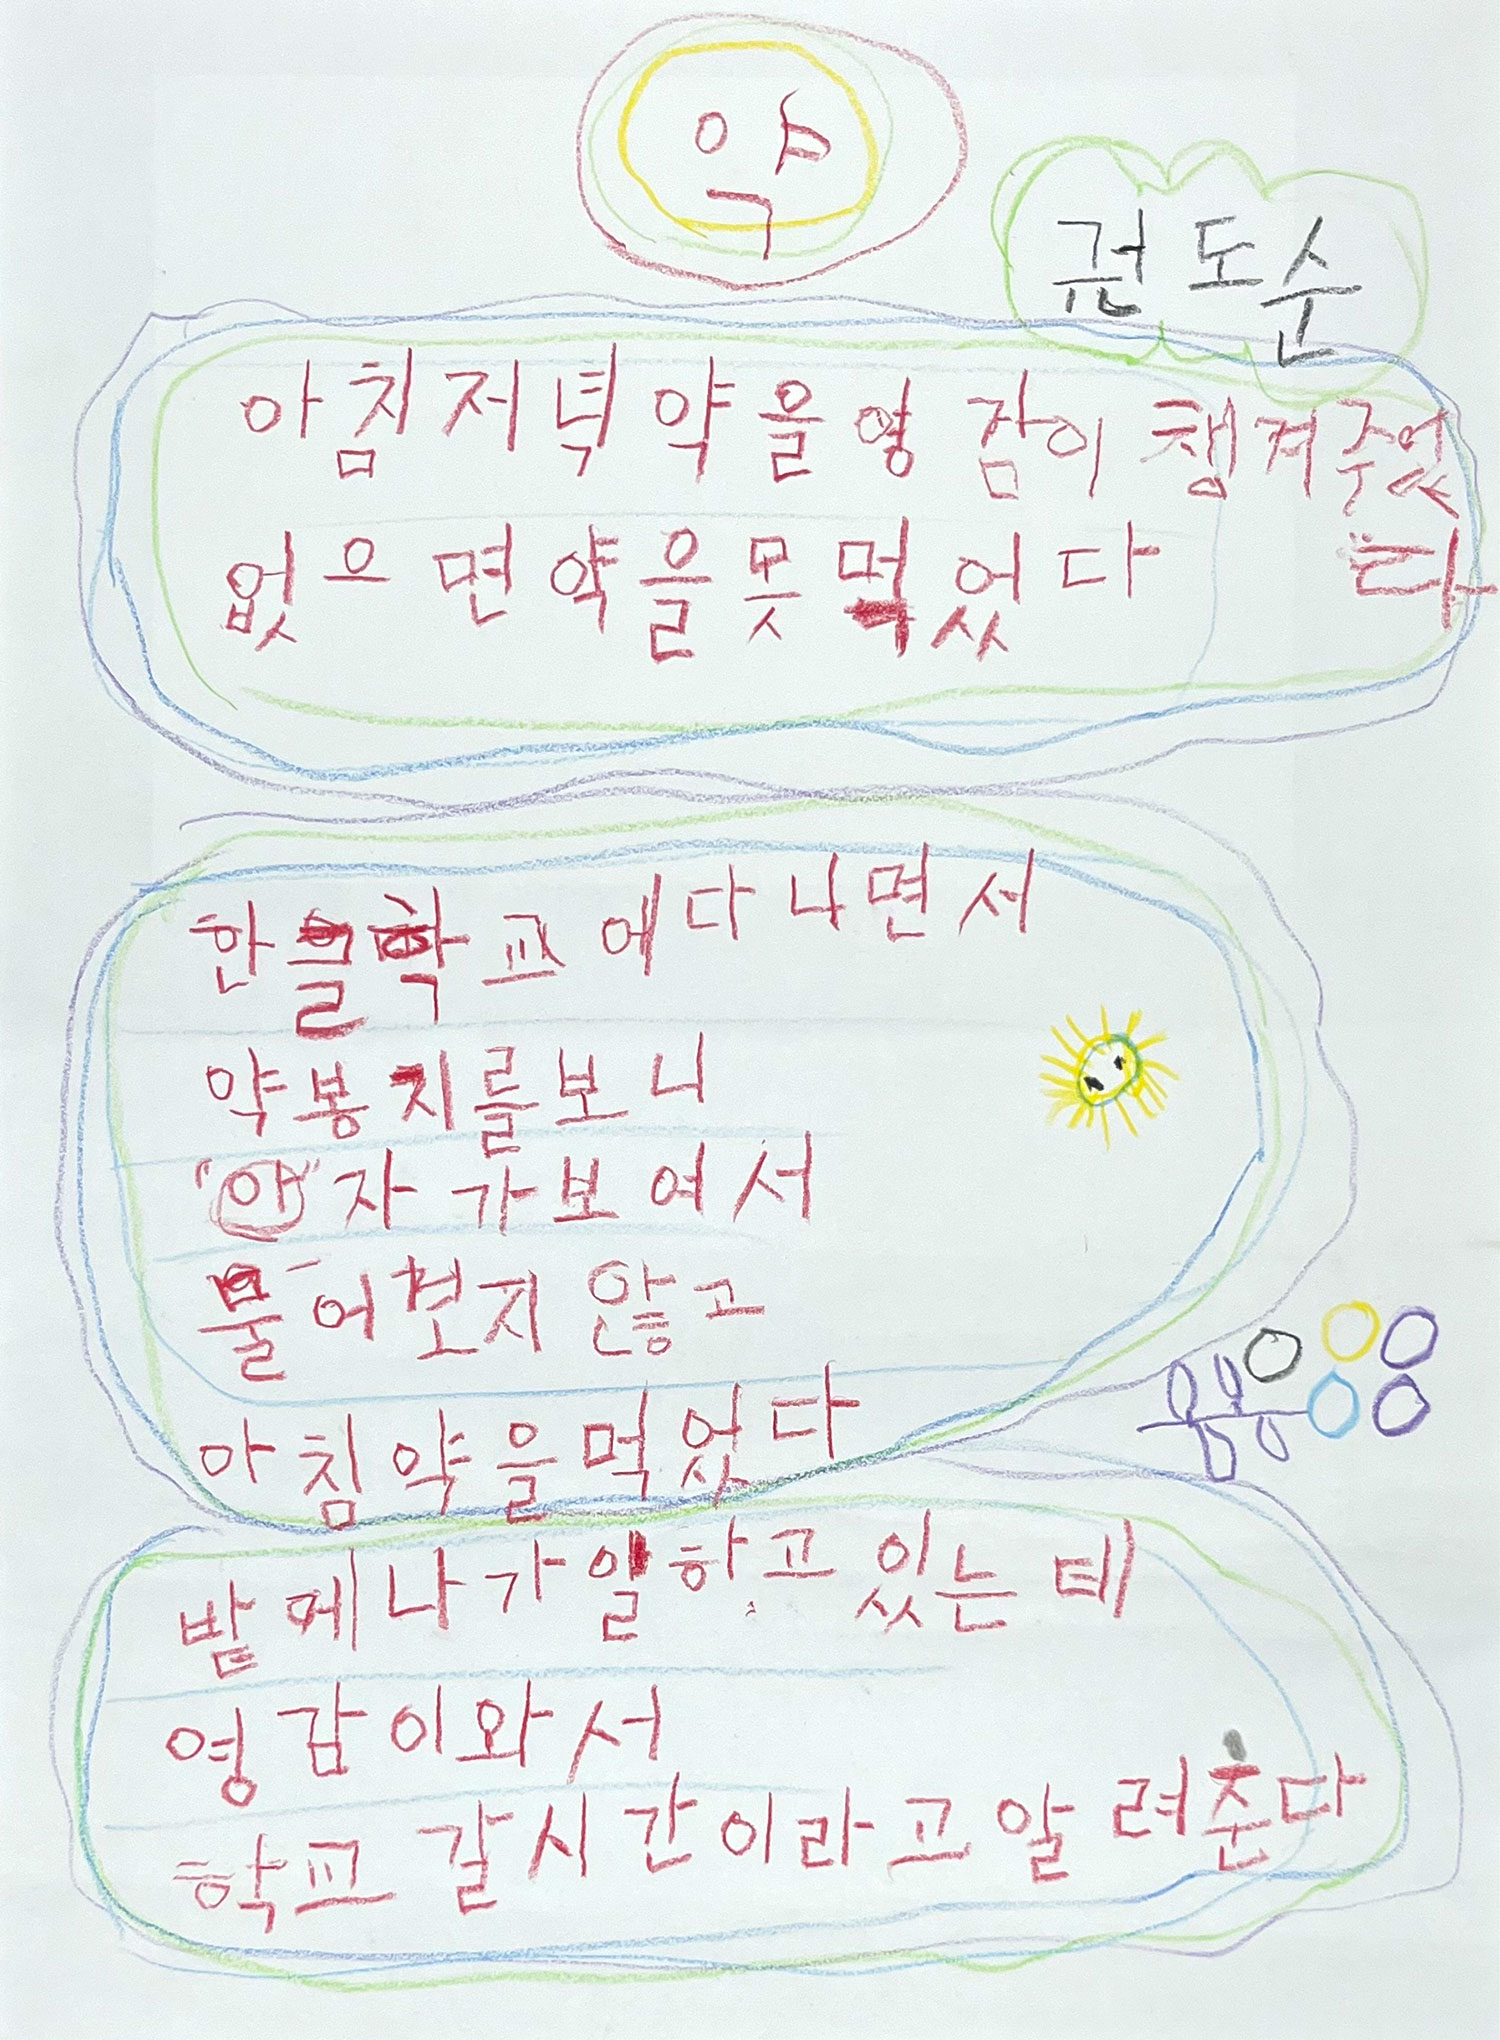 약
권도순
아침저녁약을영감이챙겨주었다
없으면약을못먹었다
한글학교에다니면서
약봉지를보니
"아"자가보여서
물어보지않고
아침약을먹었다
밭에나가일하고있는데
영감이와서
학교갈시간이라고알려준다